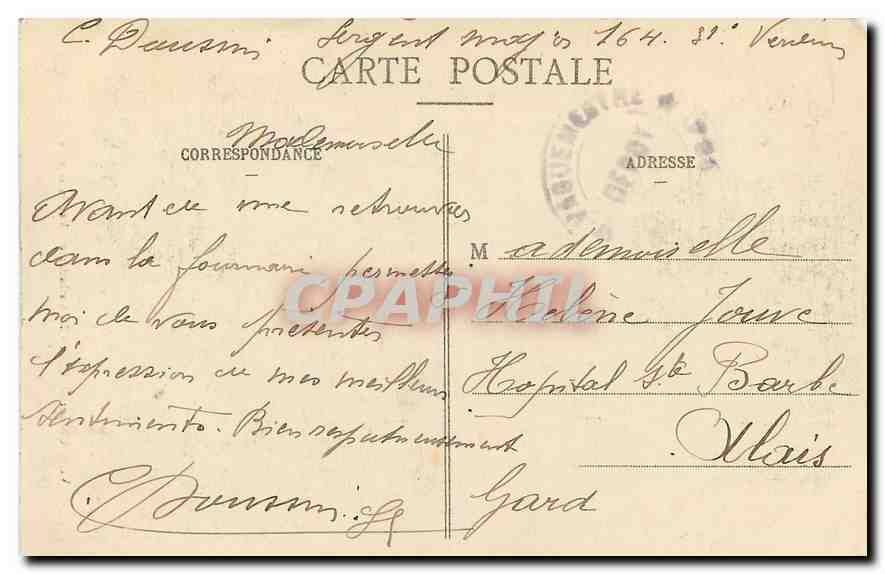 Sergent major 164.
CARTE POSTALE
Mademoiselle
CORRESPONDANCE
ADRESSE
VAGUEMESTRE
DEPOT
Avant de me retrouver
dans la fournaise permettez
moi de vous présenter
l'expression de mes meilleurs
sentiments. Bien respectueusement
Mademoiselle
Helène Jouve
Hopital Ste Barbe
Alais
Gard
CPAPHIL